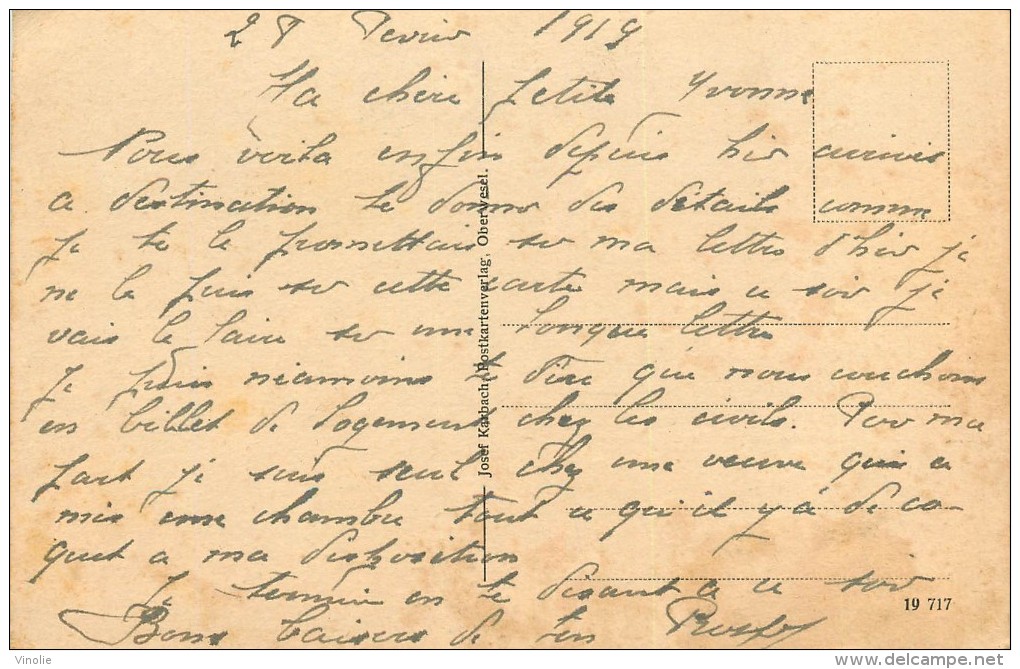 28 Fevrier 1919
Ma chere petite Yvonne
Nous voila enfin depuis hier arrivés
a destination te donner des details comme
je te le promettais sur ma lettre d'hier je
ne le puis sur cette carte mais ce soir je
vais le faire sur une longue lettre
je puis neamoins te dire que nous couchons
en billet de logement chez les civils. Pour ma
part je suis seul chez une veuve qui a
mis une chambre tout ce qu'il y'a de co-
quet a ma disposition
Je termine en te disant a ce soir
Bons baisers de ton
Josef Karbach, Postkartenverlag, Oberwesel.
19 717
Vinolie
http://www.delcampe.net